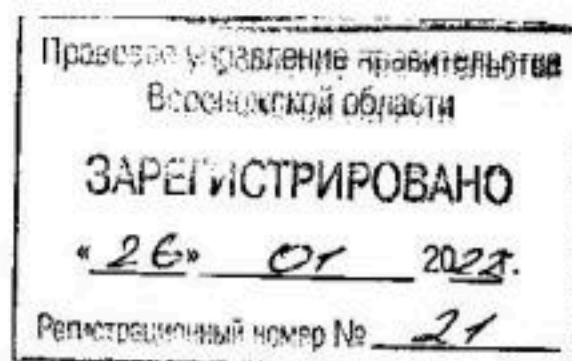 Правовое управление правительства
Воронежской области
ЗАРЕГИСТРИРОВАНО
«26» 01 2022.
Регистрационный номер № 21